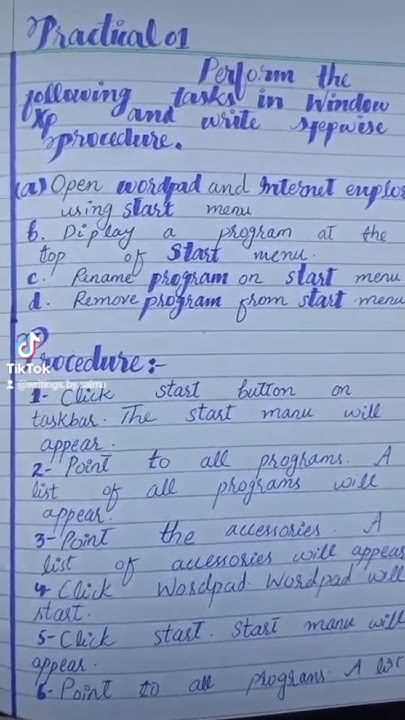 Practical 01
Perform the
following tasks in Window
Xp and write stepwise
procedure.
(a) Open wordpad and Internet explor
using start menu
b. Diplay a program at the
top of Start menu.
c. Rename program on start menu
d. Remove program from start menu
Procedure:-
TikTok
@writings.by.salma
1- Click start button on
taskbar. The start manu will
appear.
2- Point to all programs. A
list of all programs will
appear.
3- Point the accessories. A
list of accessories will appear
4- Click Wordpad. Wordpad will
start.
5- Click start. Start manu will
appear.
6- Point to all programs. A list